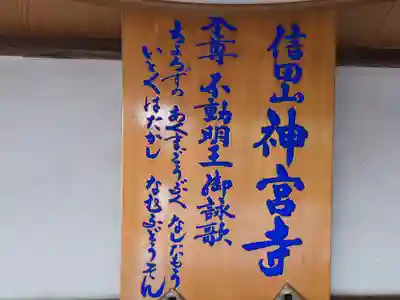 信田山 神宮寺
本尊 不動明王御詠歌
ちよろずの あくまごうぶく なしたもう
いとくはたかし なむふどうそん